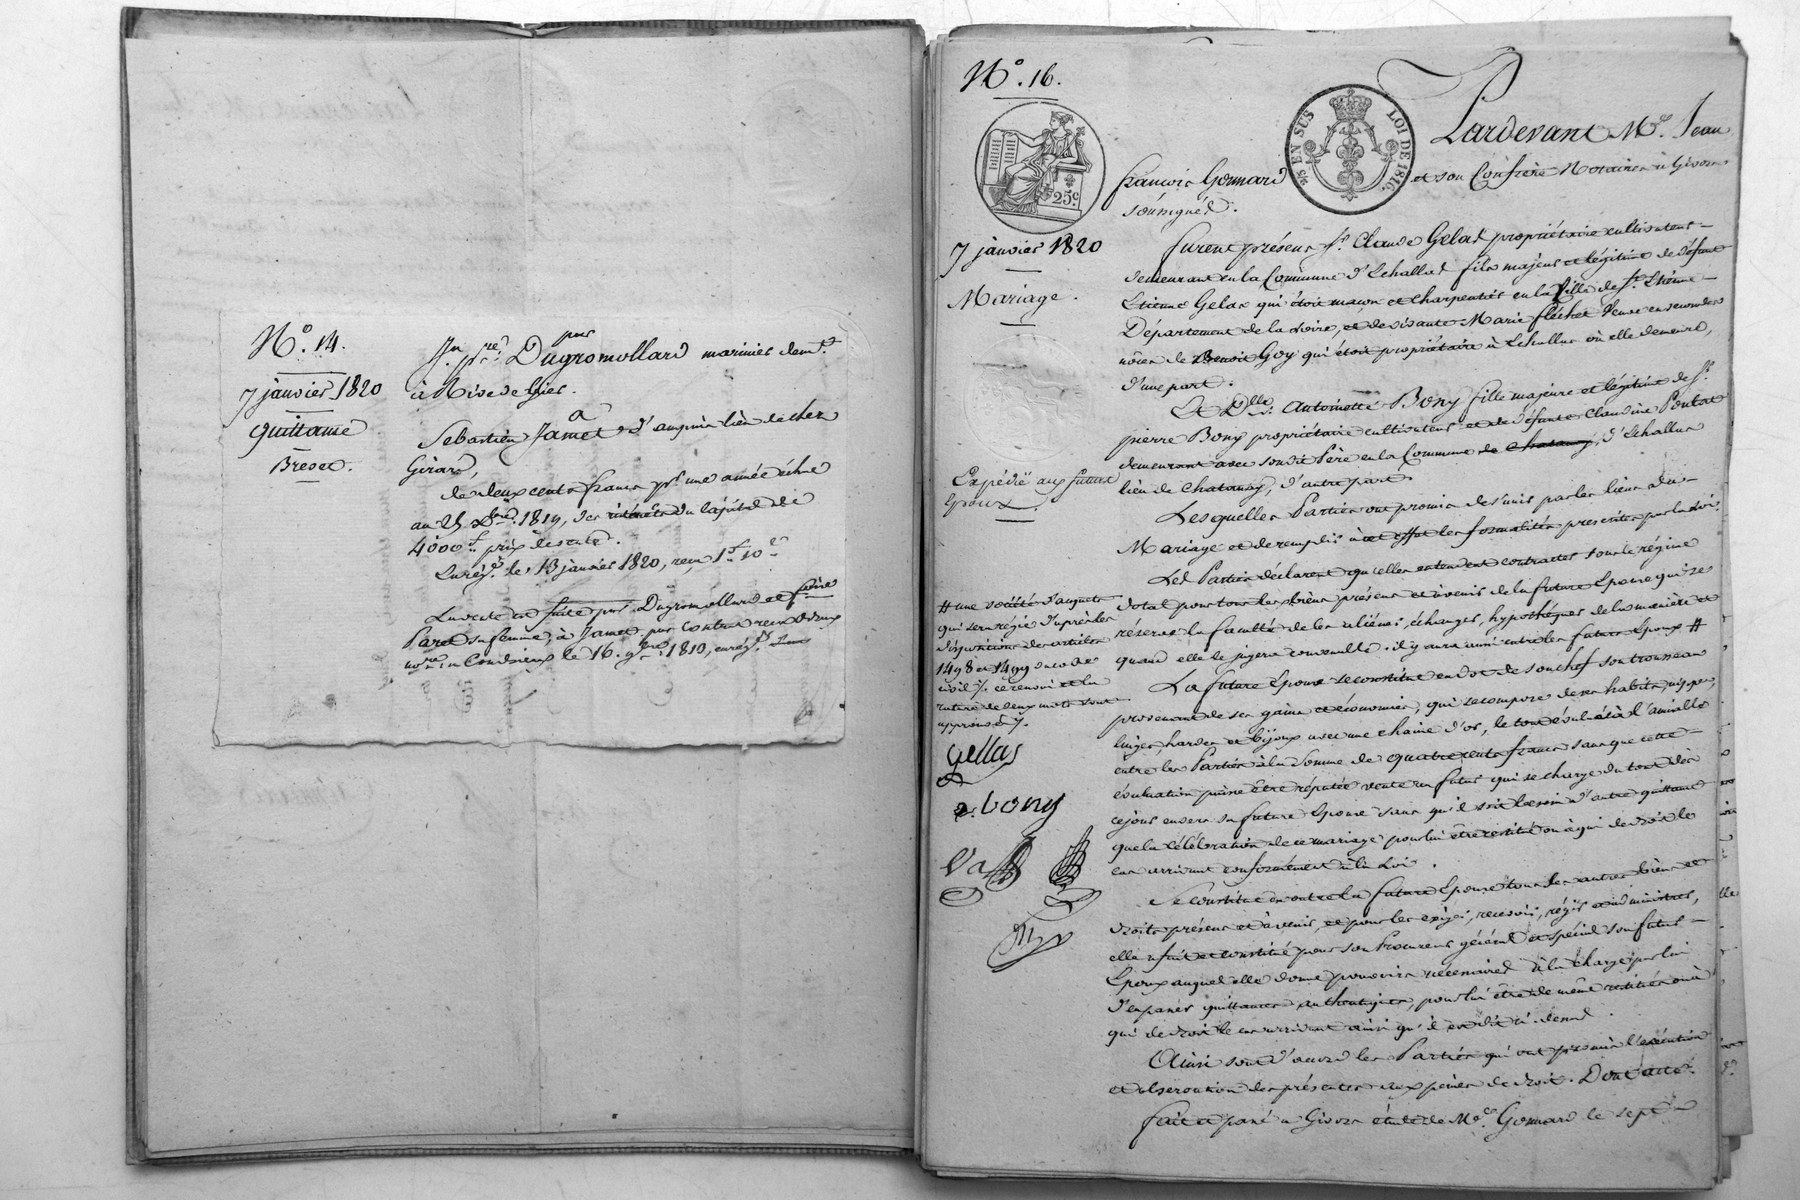 N.° 14.
7 janvier 1820
Quittance
Brevet.
Jn. pre. Dugromollard marinier demt.
à Rive de Gier.
à
Sebastien Jamet d'ampuis lieu de chez
Girard,
de deux cents francs pr. une année échue
au 25 Xbre. 1819, des intérêts du capital de
4000 f. prix de vente.
Enregé. le 13 janvier 1820, reçu 1 f. 10 c.
La vente a été faite par Dugromollard et
Paret sa femme, à Jamet par contrat reçu
nore. à Condrieux le 16. 9bre. 1810, enregé.
N.° 16.
25 c.
5/5 EN SUS
LOI DE 1816.
Pardevant Me. Jean
françois Gonnard et son Confrère Notaires à Givors
soussignés.
7 janvier 1820
Mariage.
furent présens Sr. Claude Gelas propriétaire cultivateur
demeurant en la Commune d'Echallas fils majeur et légitime de défunt
Etienne Gelas qui étoit maçon et charpentier en la Ville de St. Etienne
Département de la Loire, et de vivante Marie fléchet Veuve en secondes
nôces de Benoit Goy qui étoit propriétaire à Echallas où elle demeure,
d'une part.
Et Dlle. Antoinette Bony fille majeure et légitime de Sr.
pierre Bony propriétaire cultivateur et de défunte Claudine
demeurant avec son dit Père en la Commune d'Echallas
lieu de Chatanay, d'autre part.
Expédié aux futurs
Epoux
Lesquelles Parties ont promis de s'unir par les liens du
Mariage et de remplir à cet effet les formalités prescrites par la Loi.
Les Parties déclarent qu'elles entendent contracter sous le régime
dotal pour tous les biens présens et à venir de la future Epouse qui se
réserve la faculté de les aliéner, échanger, hypothéquer de la manière et
quand elle le jugera convenable. il y aura aussi entre les futurs Epoux #
# une société d'acquets
qui sera régie d'après les
dispositions des articles
1498 et 1499 du code
civil ./. ce renvoi et la
rature de deux mots sont
approuvés ./.
Gellas
a. bony
La future Epouse se constitue en dot de son chef son trousseau
provenant de ses gains et économies, qui se compose de ses habits, nippes,
linges, hardes et bijoux avec une chaine d'or, le tout évalué à l'amiable
entre les Parties à la Somme de quatre cents francs sans que cette
évaluation puisse être réputée vente au futur qui se charge du tout dès
ce jour envers sa future Epouse sans qu'il soit besoin d'autre quittance
que la célébration de ce mariage pour lui être restitué ou à qui de droit le
cas arrivant conformément à la Loi.
Se constitue en outre la future Epouse tous ses autres biens et
droits présens et à venir, et pour les exiger, recevoir, régir et administrer,
elle a fait et constitué pour son Procureur général et spécial son futur
Epoux auquel elle donne pouvoirs nécessaires à la charge par lui
d'en passer quittances authentiques, pour lui être de même restitués ou à
qui de droit le cas arrivant ainsi qu'il est dit ci-dessus.
Ainsi sont d'accord les Parties qui ont promis l'exécution
et observation des présentes aux peines de droit. Dont acte.
fait et passé à Givors étude de Me. Gonnard le sept